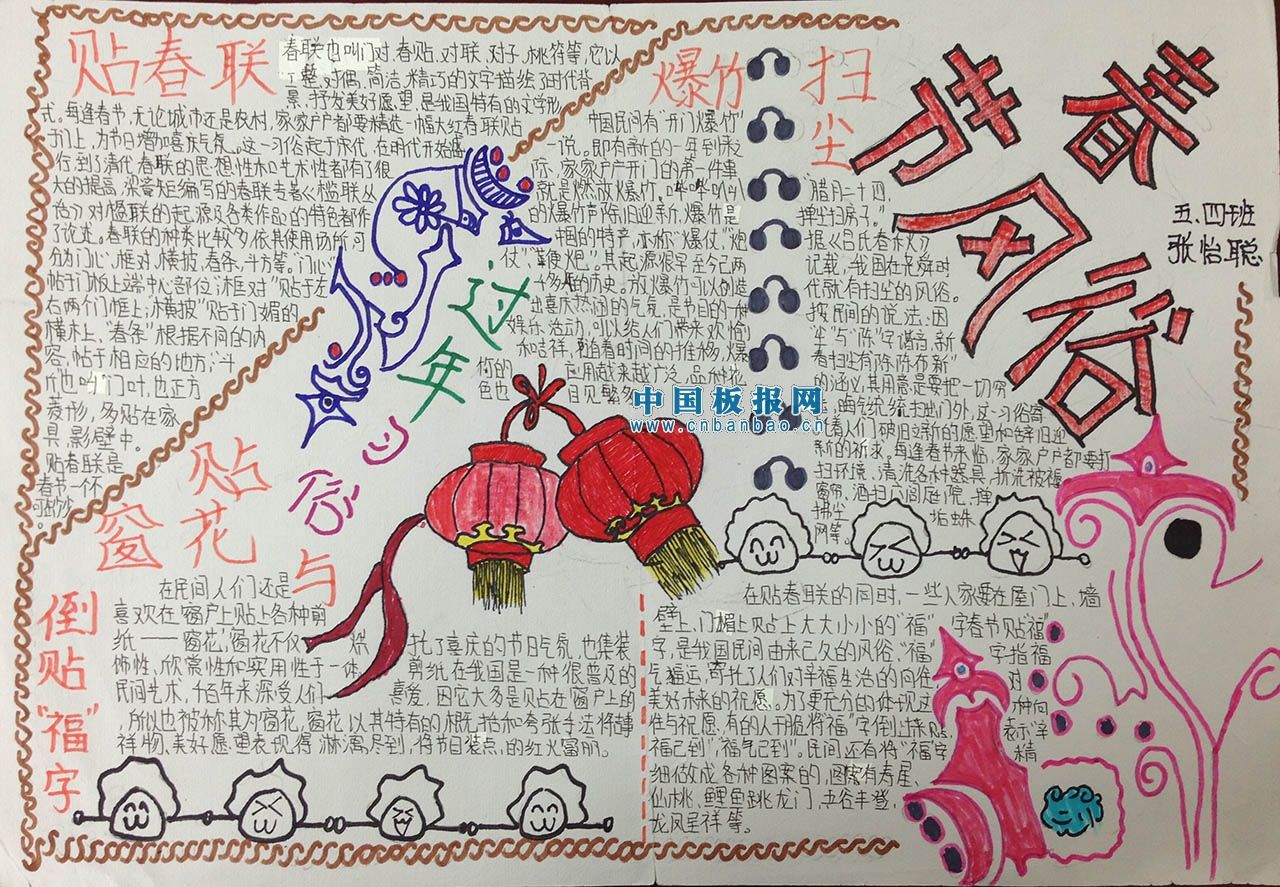 春节风俗
五.四班
张怡聪
贴春联
春联也叫门对、春贴、对联、对子、桃符等,它以
工整、对偶、简洁、精巧的文字描绘了时代背
景,抒发美好愿望,是我国特有的文学形
式。每逢春节,无论城市还是农村,家家户户都要精选一幅大红春联贴
于门上,为节日增加喜庆气氛。这一习俗起于宋代,在明代开始盛
行,到了清代春联的思想性和艺术性都有了很
大的提高,梁章矩编写的春联专著《槛联丛
话》对楹联的起源及各类作品的特色都作
了论述。春联的种类比较多,依其使用场所,可
分为门心、框对、横披、春条、斗方等。“门心”
帖于门板上端中心部位;“框对”贴于左
右两个门框上;“横披”贴于门媚的
横木上,“春条”根据不同的内
容,帖于相应的地方;“斗
斤”也叫“门叶,也正方
菱形,多贴在家
具,影壁中。
贴春联是
春节一
爆竹
中国民间有“开门爆竹”
一说。即有新的一年到来之
际,家家户户开门的第一件事
就是燃放爆竹,
的爆竹声除旧迎新,爆竹是
中国的特产,亦称“爆仗”,“炮
仗”“鞭炮”。其起源很早,至今已两
千多年的历史,放爆竹可以创造
出喜庆热闹的气氛,是节日的一种
娱乐活动,可以给人们带来欢愉
和吉祥,随着时间的推移,爆
竹的应用越来越广泛,品种花
色也日见繁多
扫尘
“腊月二十四,
掸尘扫房子。”
据《吕氏春秋》
记载,我国在尧舜时
代就有扫尘的风俗。
按民间的说法:因
“尘”与“陈”字谐音,新
春扫尘有“除陈布新”
的涵义,其用意是要把一切穷
、晦气统统扫出门外,这一习俗寄
托着人们破旧立新的愿望和辞旧迎
新的祈求。每逢春节来临,家家户户都要打
扫环境,清洗各种器具,拆洗被褥
窗帘,洒扫六闾庭院,掸
拂尘垢蛛
网等。
过年
贴窗花与倒贴“福”字
在民间人们还是
喜欢在窗户上贴上各种剪
纸——窗花,窗花不仅烘托了喜庆的节日气氛,也集装
饰性、欣赏性和实用性于一体,剪纸在我国是一种很普及的
民间艺术,千百年来深受人们喜爱,因它大多是贴在窗户上的
,所以也被称其为窗花,窗花以其特有的概括和夸张手法将吉
祥物、美好愿望表现得淋漓尽到,将节日装点的红火富丽。
在贴春联的同时,一些人家要在屋门上、墙
壁上,门楣上贴上大大小小的“福”字春节贴“福”
字,是我国民间由来已久的风俗,“福”字指福
气福运,寄托了人们对幸福生活的向往,对
美好未来的祝愿。为了更充分的体现这种向
往与祝愿,有的人干脆将“福”字倒过来贴,表示“幸
福已到”,“福气已到”。民间还有将“福”字精
细做成各种图案的,图案有寿星、
仙桃、鲤鱼跳龙门、五谷丰登,
龙凤呈祥等。
中国板报网
www.cnbanbao.cn